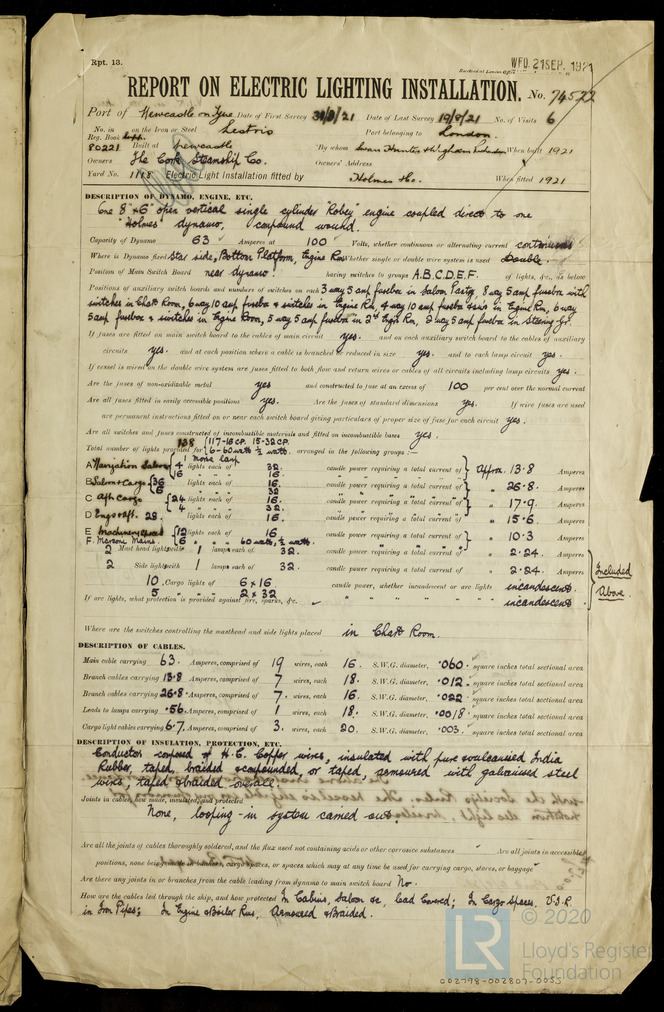 Rpt. 13.
WED. 21 SEP. 1921
Received at London Office
REPORT ON ELECTRIC LIGHTING INSTALLATION. No. 74522
Port of Newcastle on Tyne Date of First Survey 31/8/21 Date of Last Survey 19/9/21 No. of Visits 6
No. in Reg. Book on the Iron or Steel Lestris Port belonging to London.
80221 Built at Newcastle By whom Swan Hunter & Wigham Richardson When built 1921
Owners The Cork Steamship Co. Owners' Address
Yard No. 1118 Electric Light Installation fitted by Holmes & Co. When fitted 1921
DESCRIPTION OF DYNAMO, ENGINE, ETC.
One 8" & 6" open vertical single cylinder "Robey" engine coupled direct to one
"Holmes" dynamo, compound wound.
Capacity of Dynamo 63 Amperes at 100 Volts, whether continuous or alternating current continuous
Where is Dynamo fixed Star side, Bottom Platform, Engine Rm Whether single or double wire system is used Double.
Position of Main Switch Board near dynamo. having switches to groups A.B.C.D.E.F. of lights, &c., as below
Positions of auxiliary switch boards and numbers of switches on each 3 way 5 amp fusebox in Saloon Pantry, 8 way 5 amp fusebox with
switches in Chart Room, 6 way 10 amp fusebox & switches in Engine Rm, 4 way 10 amp fusebox in Engine Rm, 6 way
5 amp fusebox & switches in Engine Room, 5 way 5 amp fusebox in 2nd Engr Rm, 2 way 5 amp fusebox in Steering Gr.
If fuses are fitted on main switch board to the cables of main circuit yes. and on each auxiliary switch board to the cables of auxiliary
circuits yes. and at each position where a cable is branched or reduced in size yes. and to each lamp circuit yes.
If vessel is wired on the double wire system are fuses fitted to both flow and return wires or cables of all circuits including lamp circuits yes.
Are the fuses of non-oxidizable metal yes and constructed to fuse at an excess of 100 per cent over the normal current
Are all fuses fitted in easily accessible positions yes. Are the fuses of standard dimensions yes. If wire fuses are used
are permanent instructions fitted on or near each switch board giving particulars of proper size of fuse for each circuit yes.
Are all switches and fuses constructed of incombustible materials and fitted on incombustible bases yes.
Total number of lights provided for 138 {117-16 CP. 15-32 CP. 6-60 watt ½ watts. arranged in the following groups:—
1 morse lamp
A Navigation Saloon 4 lights each of 32. candle power requiring a total current of Approx. 13.8 Amperes
16 16.
B Saloon & Cargo 36 lights each of 16. candle power requiring a total current of " 26.8 Amperes
6 32
C Aft Cargo 24 lights each of 16. candle power requiring a total current of " 17.9 Amperes
4 32.
D Engs & Aft. 28. lights each of 16 candle power requiring a total current of " 15.6 Amperes
E Machinery Spaces 12 lights each of 16 candle power requiring a total current of " 10.3 Amperes
F. Marconi Mains. 6 " " 60 watts, ½ watts.
2 Mast head lights with 1 lamps each of 32. candle power requiring a total current of " 2.24 Amperes
2 Side lights with 1 lamps each of 32. candle power requiring a total current of " 2.24 Amperes
Included Above.
10 Cargo lights of 6 x 16 candle power, whether incandescent or arc lights incandescent.
5 " " 2 x 32 " " " " incandescent
If arc lights, what protection is provided against fire, sparks, &c.
Where are the switches controlling the masthead and side lights placed in Chart Room.
DESCRIPTION OF CABLES.
Main cable carrying 63. Amperes, comprised of 19 wires, each 16. S.W.G. diameter, .060. square inches total sectional area
Branch cables carrying 13.8 Amperes, comprised of 7 wires, each 18. S.W.G. diameter, .012. square inches total sectional area
Branch cables carrying 26.8. Amperes, comprised of 7. wires, each 16. S.W.G. diameter, .022 square inches total sectional area
Leads to lamps carrying .56. Amperes, comprised of 1 wires, each 18. S.W.G. diameter, .0018 square inches total sectional area
Cargo light cables carrying 6.7. Amperes, comprised of 3. wires, each 20. S.W.G. diameter, .003. square inches total sectional area
DESCRIPTION OF INSULATION, PROTECTION, ETC.
Conductor composed of H.C. Copper wires, insulated with pure & vulcanised India
Rubber, taped, braided & compounded, or taped, armoured with galvanised steel
wires, taped & braided overall.
Joints in cables, how made, insulated, and protected
None, looping-in system carried out.
Are all the joints of cables thoroughly soldered, and the flux used not containing acids or other corrosive substances Are all joints in accessible
positions, none being in bunkers, cargo spaces, or spaces which may at any time be used for carrying cargo, stores, or baggage
Are there any joints in or branches from the cable leading from dynamo to main switch board No.
How are the cables led through the ship, and how protected In Cabins, Saloon &c, Lead Covered; In Cargo Spaces, V.I.R.
in Iron Pipes; In Engine & Boiler Rms, Armoured & Braided.
© 2020
LR
Lloyd's Register
Foundation
002798-002807-0055